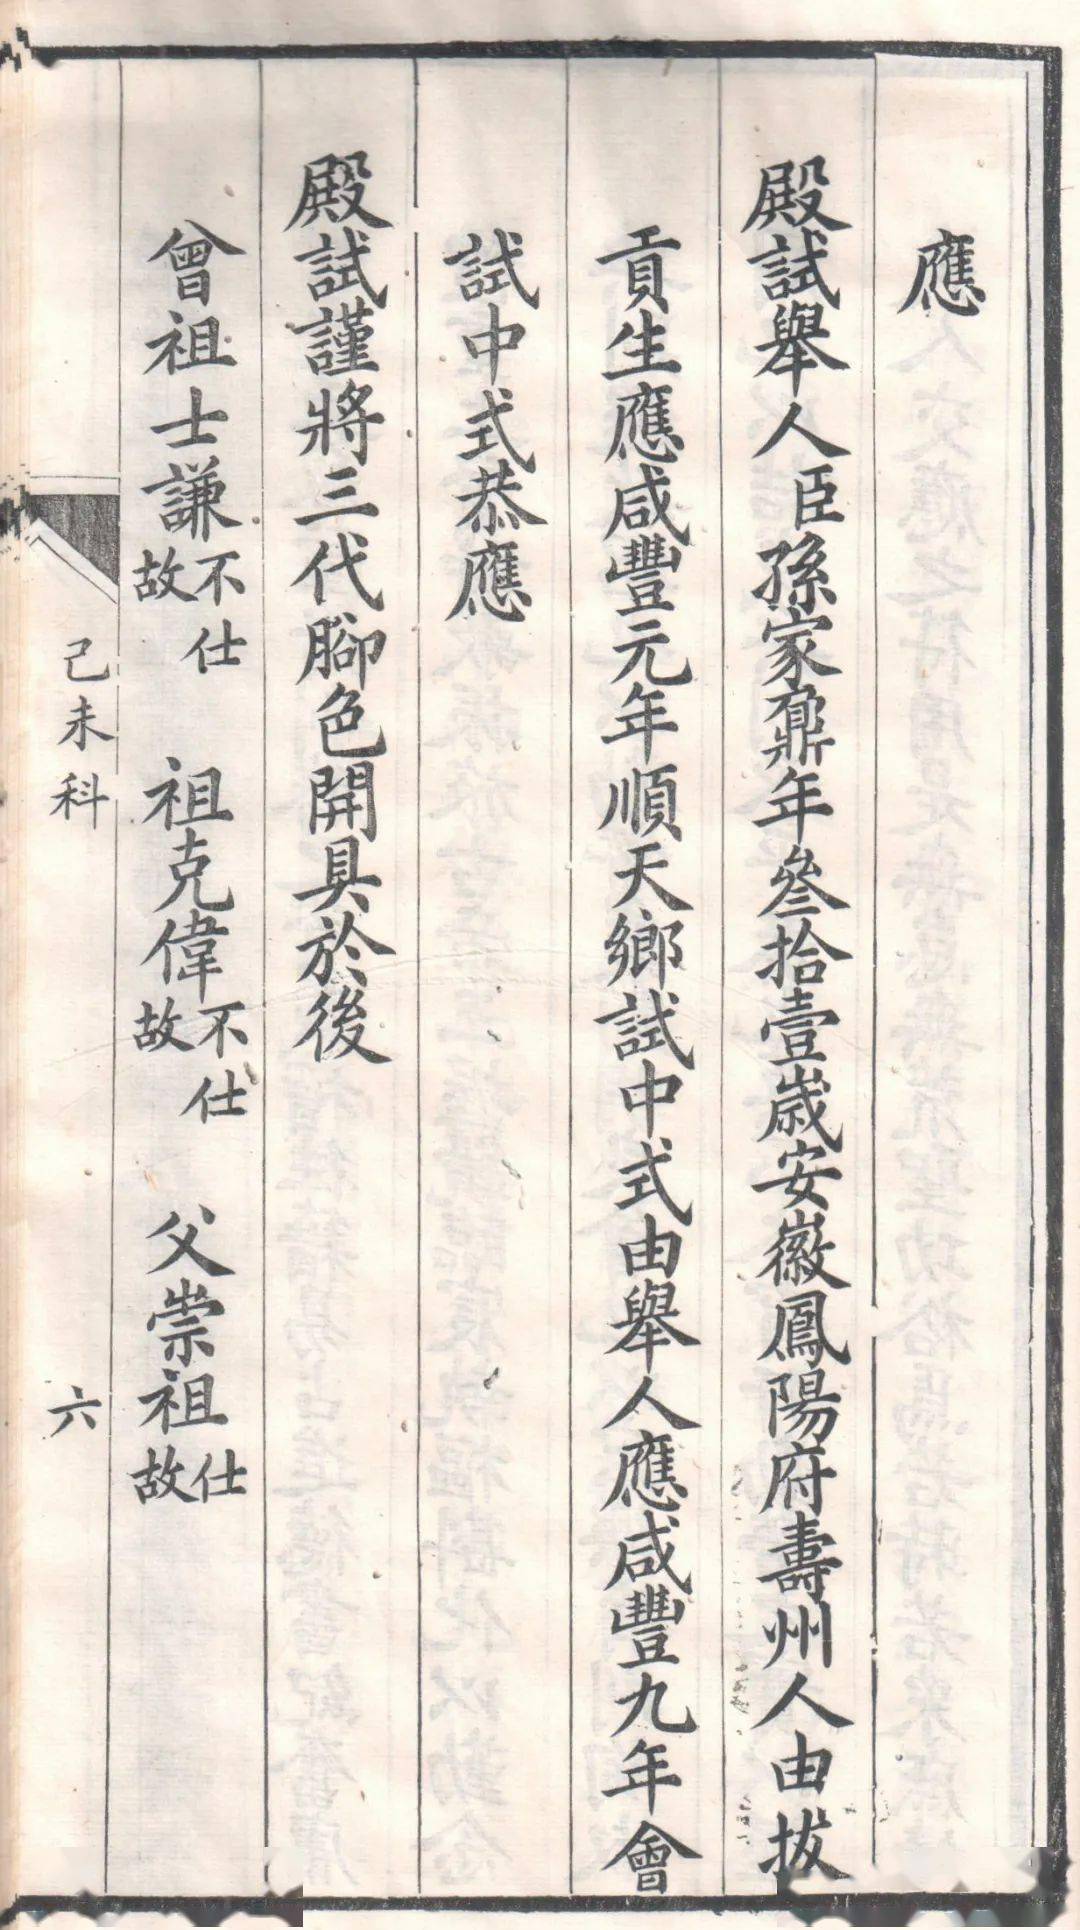 應
殿試舉人臣孫家鼐年叁拾壹歲安徽鳳陽府壽州人由拔
貢生應咸豐元年順天鄉試中式由舉人應咸豐九年會
試中式恭應
殿試謹將三代腳色開具於後
曾祖士謙不仕故 祖克偉不仕故 父崇祖仕故
己未科 六